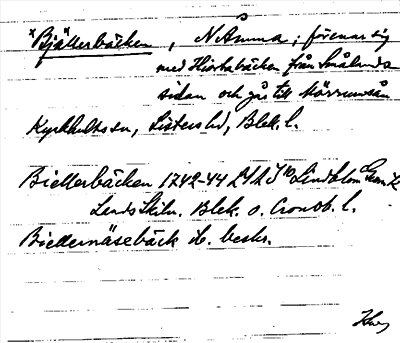 *Bjällerbäcken, N Åmma; förenar sig
med Hjortabäcken från Smålands
sidan och går till Mörrumsån
Kyrkhults sn, Listers hd, Blek. l.
Biellerbäcken 1742-44 LSA J 10 Lindblom Geom.
Lands Skiln. Blek. o. Cronob. l.
Biellernäsebäck ib. beskr.